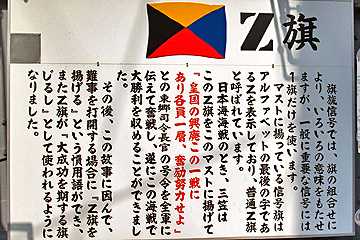 Z旗
旗旒信号では、旗の組合せに
より、いろいろの意味をもたせ
ますが、一般に重要な信号には
1旗だけを使います。
マストに揚っている信号旗は
アルファベットの最後の字であ
るZを表示しており、普通Z旗
と呼ばれています。
日本海海戦のとき、三笠は
このZ旗をこのマストに揚げて
「皇国の興廃この一戦に
あり各員一層、奮励努力せよ」
との東郷司令長官の号令を全軍に
伝えて奮戦し、遂にこの海戦で
大勝利を収めることができまし
た。
その後、この故事に因んで、
難事を打開する場合に「Z旗を
揚げる」という慣用語ができ、
またZ旗が「大成功を期する旗
じるし」として使われるように
なりました。